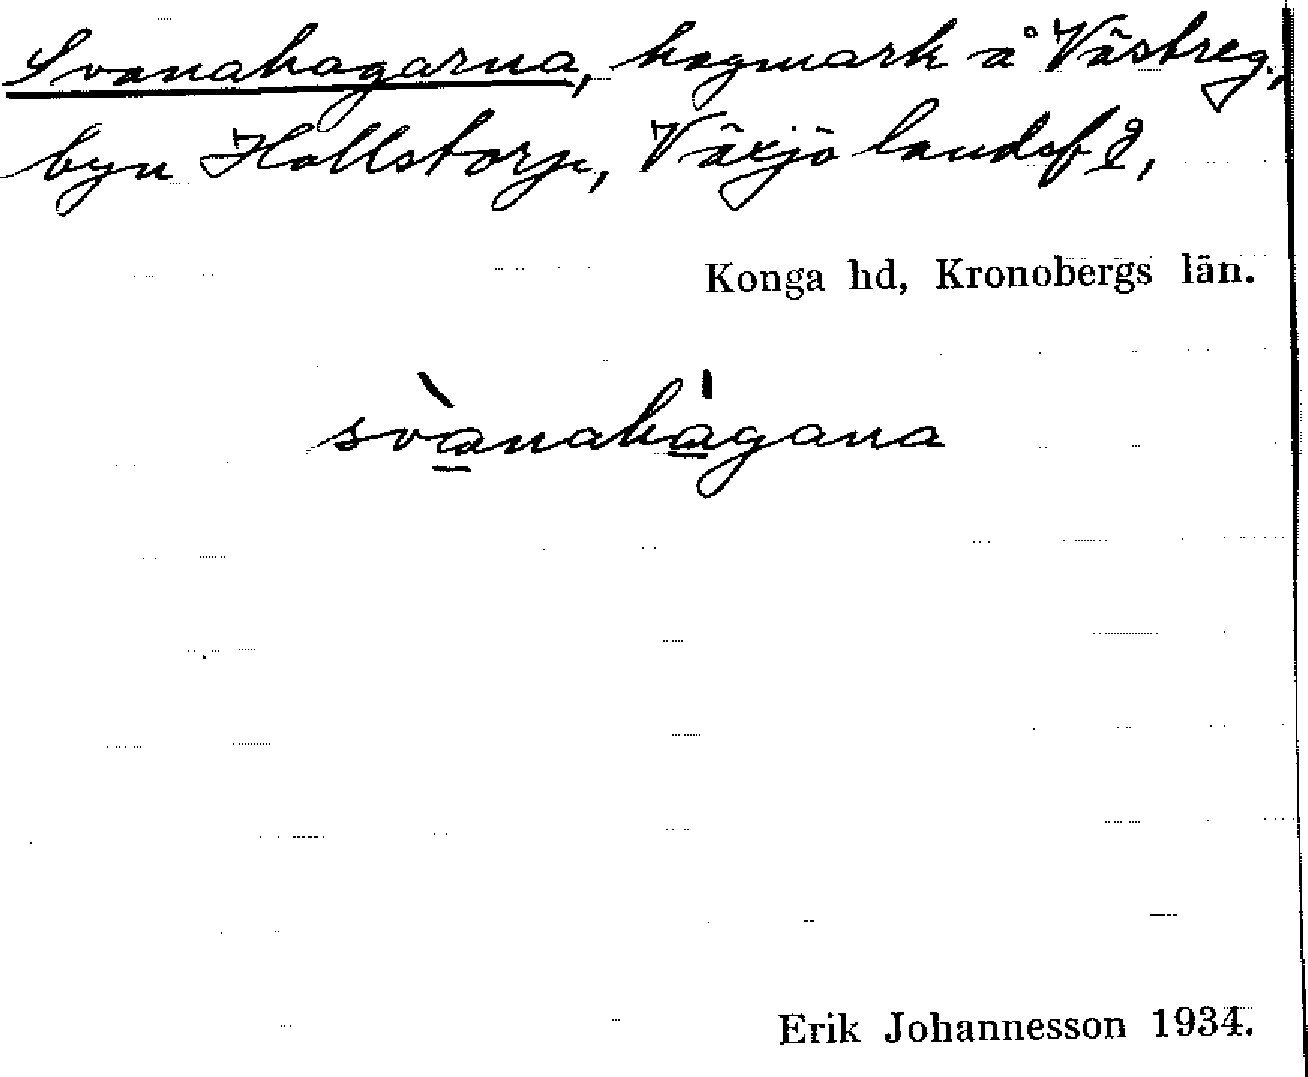 Svanahagarna, hagmark å Västreg.,
byn Hollstorp, Växjö landsf 2,
Konga hd, Kronobergs län.
svànahágana
Erik Johannesson 1934.